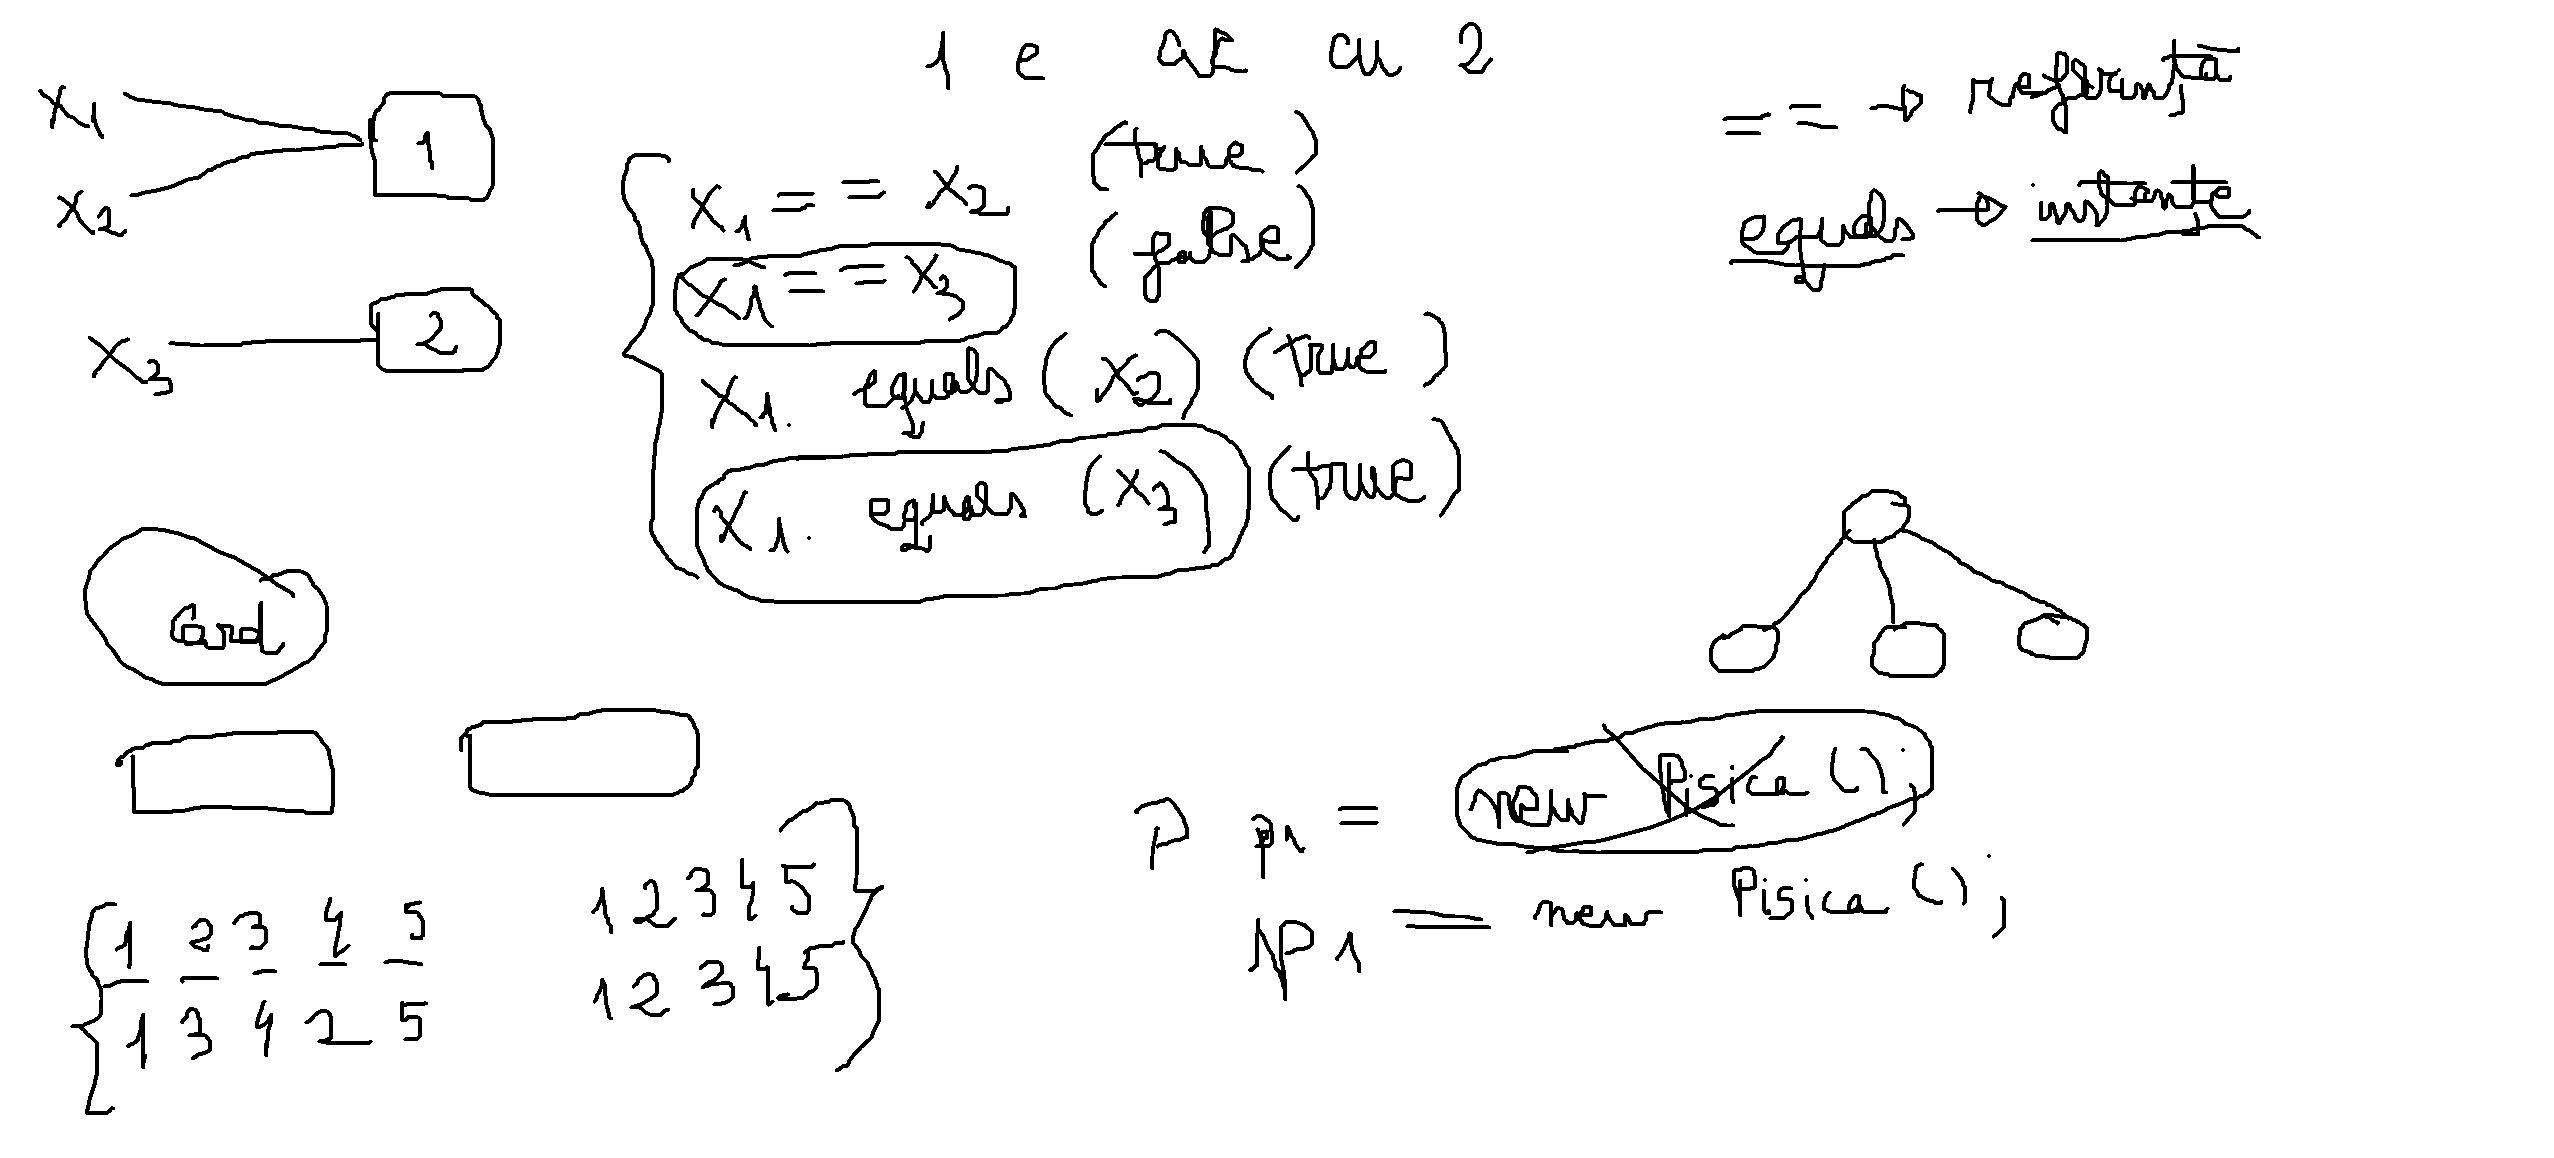 1 e ac cu 2
x1
x2
1
x3
2
x1 == x2 (true)
x1 == x3 (false)
x1. equals (x2) (true)
x1. equals (x3) (true)
== → referință
equals → instanțe
Card
1 2 3 4 5
1 3 4 2 5
1 2 3 4 5
1 2 3 4 5
P p1 = new Pisica ();
p1 = new Pisica ();